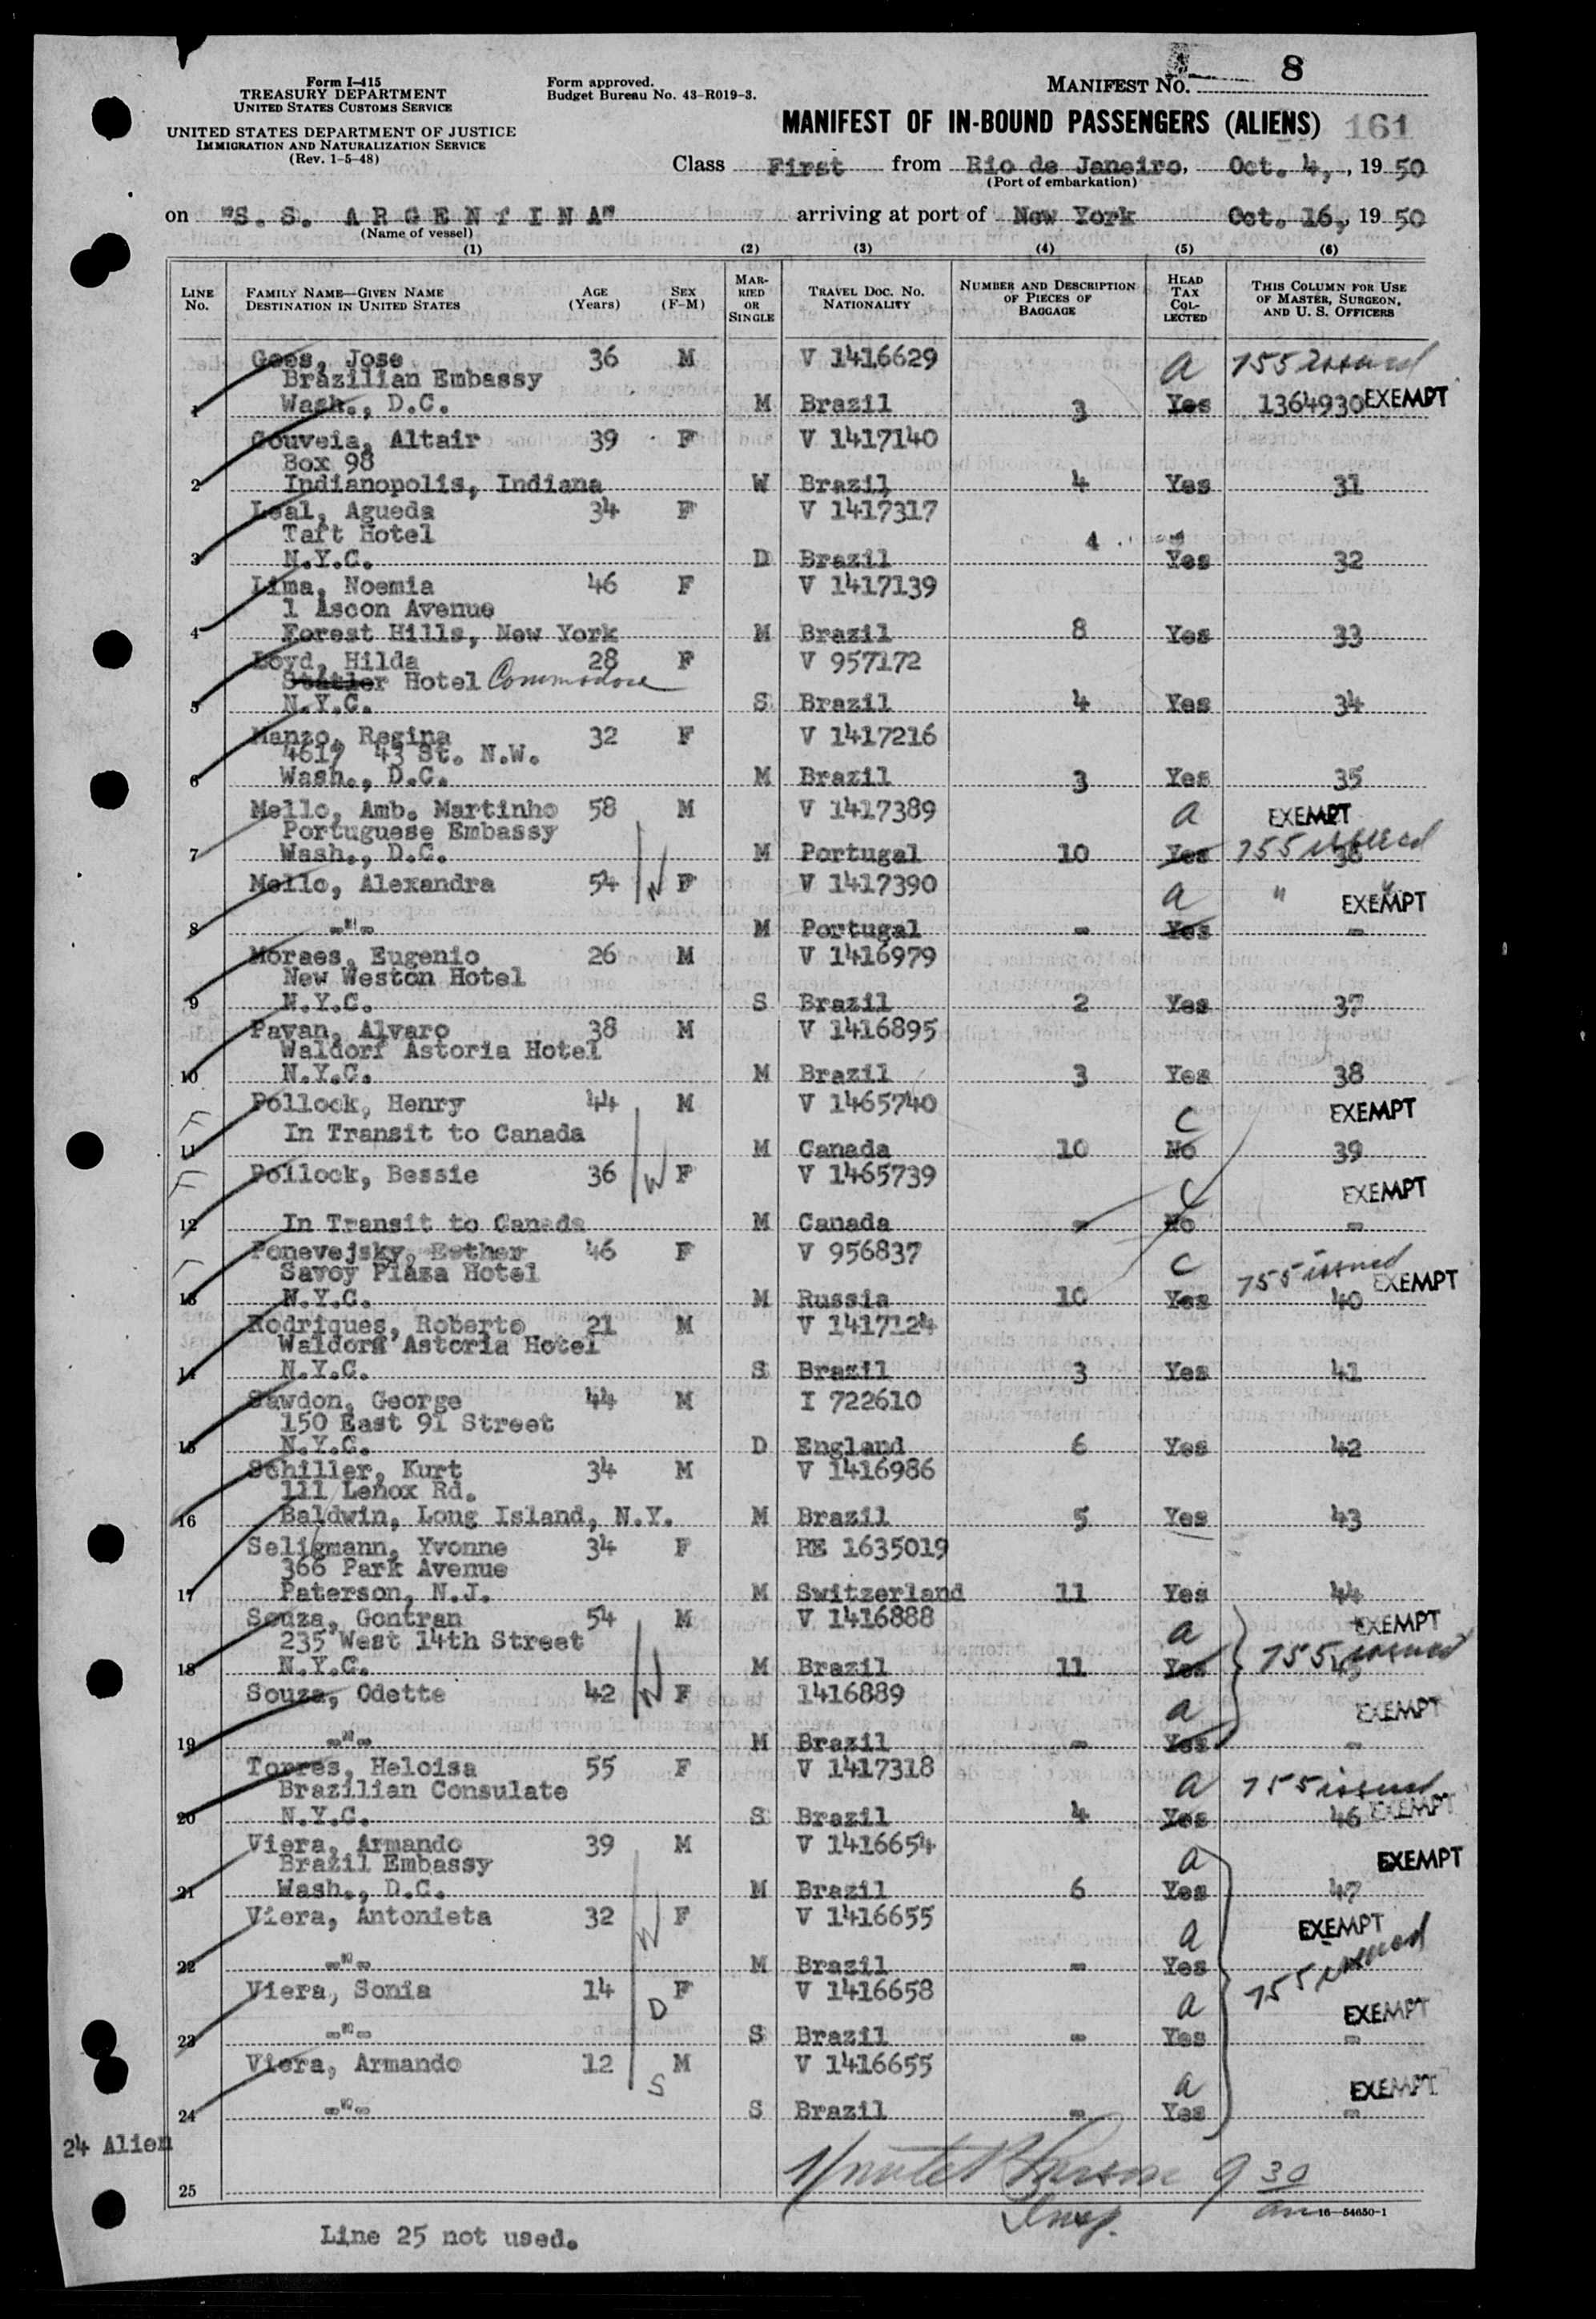 Form I-415
TREASURY DEPARTMENT
UNITED STATES CUSTOMS SERVICE
UNITED STATES DEPARTMENT OF JUSTICE
IMMIGRATION AND NATURALIZATION SERVICE
(Rev. 1-5-48)
Form approved.
Budget Bureau No. 43-R019-3.
MANIFEST NO. 8
MANIFEST OF IN-BOUND PASSENGERS (ALIENS) 161
Class First from Rio de Janeiro, Oct. 4, , 19 50
(Port of embarkation)
on "S. S. A R G E N T I N A" arriving at port of New York Oct. 16, , 19 50
(Name of vessel)
(1) (2) (3) (4) (5) (6)
LINE No. FAMILY NAME—GIVEN NAME DESTINATION IN UNITED STATES AGE (Years) SEX (F-M) MARRIED OR SINGLE TRAVEL DOC. NO. NATIONALITY NUMBER AND DESCRIPTION OF PIECES OF BAGGAGE HEAD TAX COLLECTED THIS COLUMN FOR USE OF MASTER, SURGEON, AND U. S. OFFICERS
Goes, Jose 36 M V 1416629 a 755 issued
Brazilian Embassy
1 Wash., D.C. M Brazil 3 Yes 1364930 EXEMPT
Gouveia, Altair 39 F V 1417140
Box 98
2 Indianopolis, Indiana W Brazil 4 Yes 31
Leal, Agueda 34 F V 1417317
Taft Hotel
3 N.Y.C. D Brazil 4 Yes 32
Lima, Noemia 46 F V 1417139
1 Ascon Avenue
4 Forest Hills, New York M Brazil 8 Yes 33
Loyd, Hilda 28 F V 957172
Statler Hotel Commodore
5 N.Y.C. S Brazil 4 Yes 34
Manzo, Regina 32 F V 1417216
4617 43 St. N.W.
6 Wash., D.C. M Brazil 3 Yes 35
Mello, Amb. Martinho 58 M V 1417389 a EXEMPT
Portuguese Embassy
7 Wash., D.C. M Portugal 10 Yes 755 issued 36
Mello, Alexandra 54 W F V 1417390 a " " EXEMPT
8 -"- M Portugal - Yes -
Moraes, Eugenio 26 M V 1416979
New Weston Hotel
9 N.Y.C. S Brazil 2 Yes 37
Pavan, Alvaro 38 M V 1416895
Waldorf Astoria Hotel
10 N.Y.C. M Brazil 3 Yes 38
Pollock, Henry 44 M V 1465740 C EXEMPT
In Transit to Canada
11 M Canada 10 No 39
Pollock, Bessie 36 W F V 1465739 C EXEMPT
12 In Transit to Canada M Canada - No -
Ponevejsky, Esther 46 F V 956837 C 755 issued
Savoy Plaza Hotel EXEMPT
13 N.Y.C. M Russia 10 Yes 40
Rodriques, Roberto 21 M V 1417124
Waldorf Astoria Hotel
14 N.Y.C. S Brazil 3 Yes 41
Sawdon, George 44 M I 722610
150 East 91 Street
15 N.Y.C. D England 6 Yes 42
Schiller, Kurt 34 M V 1416986
111 Lenox Rd.
16 Baldwin, Long Island, N.Y. M Brazil 5 Yes 43
Seligmann, Yvonne 34 F RE 1635019
366 Park Avenue
17 Paterson, N.J. M Switzerland 11 Yes 44
Souza, Gontran 54 M V 1416888 a EXEMPT
235 West 14th Street
18 N.Y.C. M Brazil 11 Yes 755 issued
Souza, Odette 42 W F 1416889 a EXEMPT
19 -"- M Brazil - Yes -
Torres, Heloisa 55 F V 1417318 a 755 issued
Brazilian Consulate
20 N.Y.C. S Brazil 4 Yes 46 EXEMPT
Viera, Armando 39 M V 1416654 a EXEMPT
Brazil Embassy
21 Wash., D.C. M Brazil 6 Yes 47
Viera, Antonieta 32 W F V 1416655 a EXEMPT
22 -"- M Brazil - Yes 755 issued
Viera, Sonia 14 D F V 1416658 a EXEMPT
23 -"- S Brazil - Yes -
Viera, Armando 12 S M V 1416655 a EXEMPT
24 -"- S Brazil - Yes -
24 Alien
25 9 30 am
Insp.
16—54650-1
Line 25 not used.